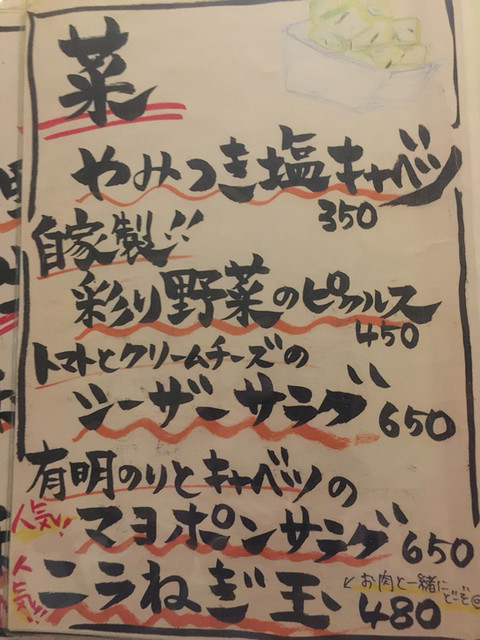 菜
やみつき塩キャベツ
350
自家製!!
彩り野菜のピクルス
450
トマトとクリームチーズの
シーザーサラダ 650
有明のりとキャベツの
人気!! マヨポンサラダ 650
人気!! ニラねぎ玉 480
↙お肉と一緒に
どーぞ